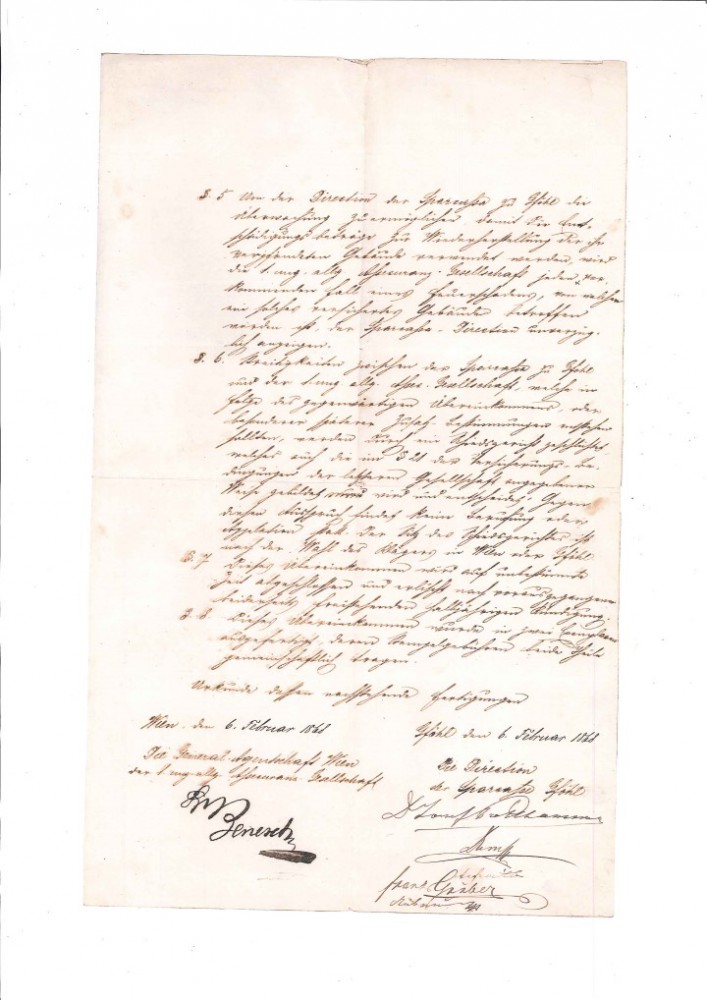 §. 5 Um der Direction der Sparcassa zu Gföhl die
Überwachung zu ermöglichen damit die Ent-
schädigungsbeträge zur Wiederherstellung der ihr
verpfändeten Gebäude verwendet werden, wird
die 1. ung. allg. Assecuranz-Gesellschaft jeden, vor-
kommenden Fall eines Feuerschadens, von welchem
ein solches versichertes Gebäude betroffen
worden ist, der Sparcassa-Direction unverzüg-
lich anzeigen.
§. 6. Streitigkeiten zwischen der Sparcassa zu Gföhl
und der 1. ung. allg. Assec. Gesellschaft, welche in
Folge des gegenwärtigen Übereinkommens, oder
besonderer späterer Zusatz-Bestimmungen entstehen
sollten, werden durch ein Schiedsgericht geschlichtet,
welches auf die im § 21 der Versicherungs-Be-
dingungen der letzteren Gesellschaft angegebene
Weise gebildet wird und entscheidet. Gegen
diesen Ausspruch findet keine Berufung oder
Appellation statt. Der Sitz des Schiedsgerichtes ist
nach der Wahl des Klägers in Wien oder Gföhl.
§. 7 Dieses Übereinkommen wird auf unbestimmte
Zeit abgeschlossen und erlischt nach vorausgegangener
beiderseits freistehenden halbjährigen Kündigung.
§. 8 Dieses Übereinkommen wurde in zwei Exemplaren
ausgefertigt, deren Stempelgebühren beide Theile
gemeinschaftlich tragen.
Urkunde dessen nachstehende Fertigungen
Wien. den 6. Februar 1868 Gföhl den 6. Februar 1868
Die General-Agentschaft Wien
der 1. ung. allg. Assecuranz-Gesellschaft
Die Direction
der Sparcassa Gföhl
Benesch
Franz Gruber